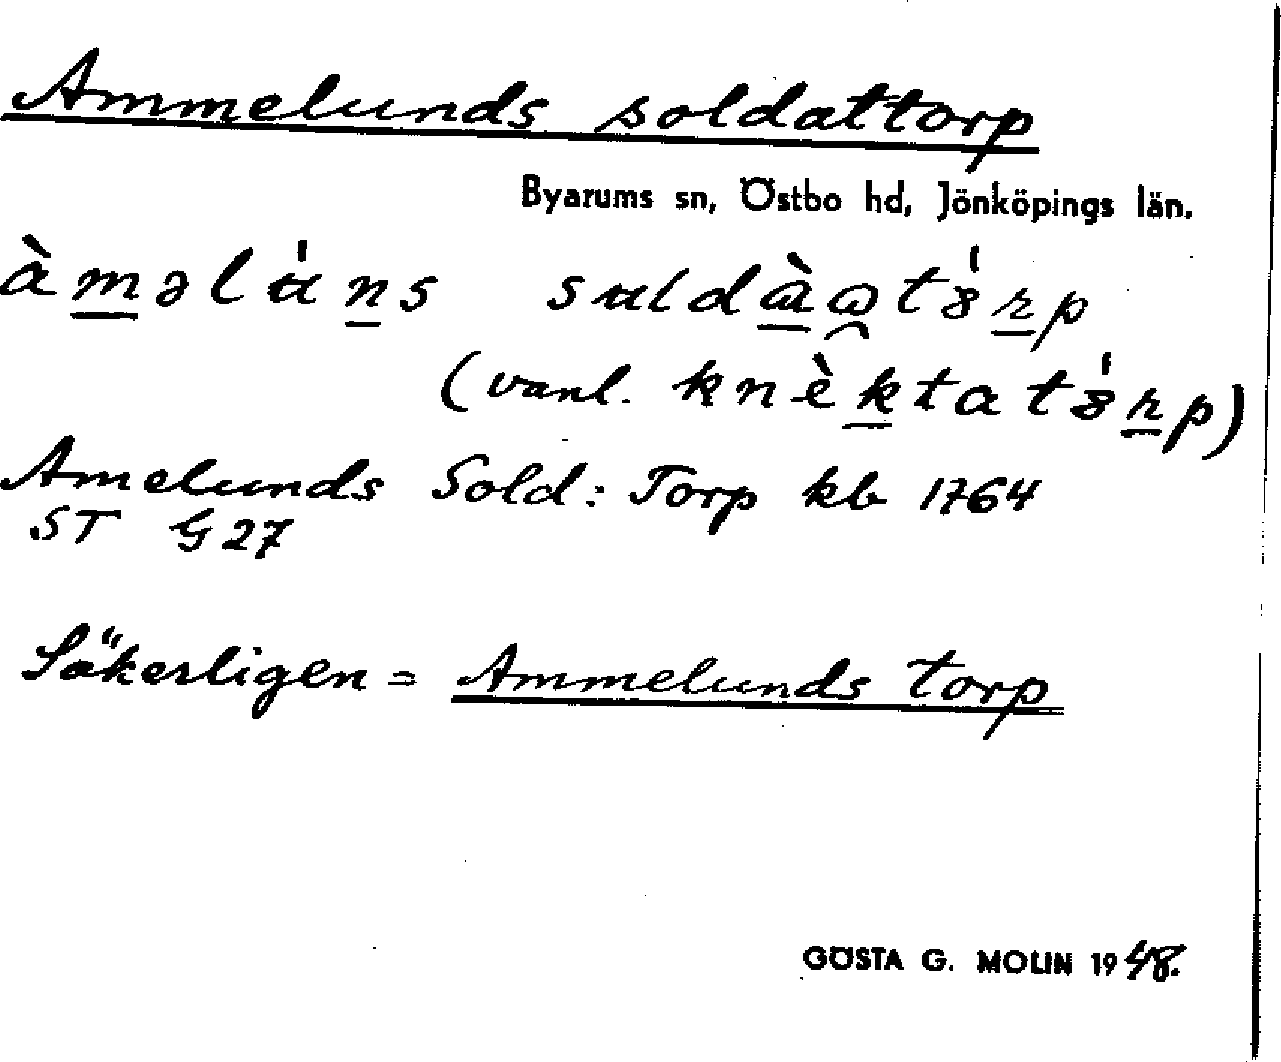 Ammelunds soldattorp
Byarums sn, Östbo hd, Jönköpings län.
(vanl.
Amelunds Sold: Torp kb 1764
ST G 27
Säkerligen = Ammelunds torp
GÖSTA G. MOLIN 1948.